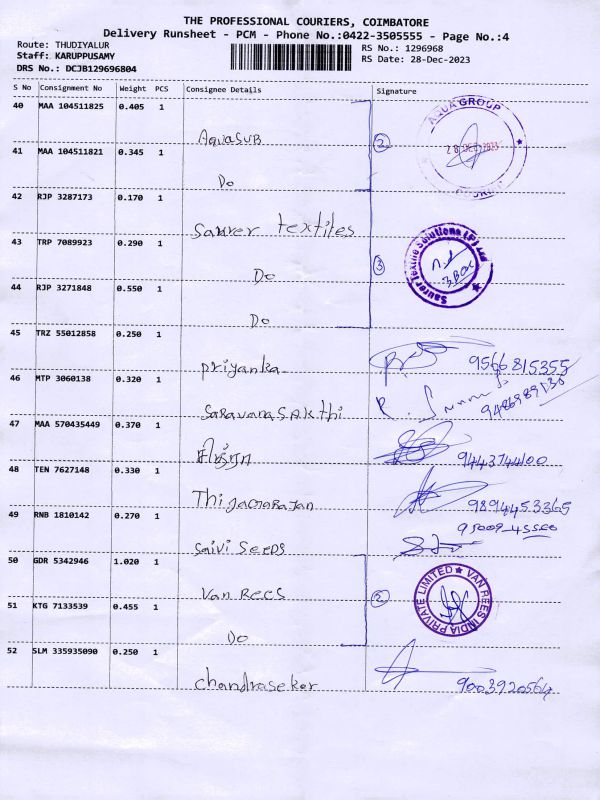 THE PROFESSIONAL COURIERS, COIMBATORE
Delivery Runsheet - PCM - Phone No.:0422-3505555 - Page No.:4
Route: THUDIYALUR
RS No.: 1296968
Staff: KARUPPUSAMY
RS Date: 28-Dec-2023
DRS No.: DCJB129696804
S No Consignment No Weight PCS Consignee Details Signature
40 MAA 104511825 0.405 1
AquaSUB
AQUA GROUP
28 DEC 2023
2
41 MAA 104511821 0.345 1
Do
42 RJP 3287173 0.170 1
Saurer textiles
43 TRP 7089923 0.290 1
Do
3
Saurer Textile Solutions (P) Ltd
44 RJP 3271848 0.550 1
Do
45 TRZ 55012858 0.250 1
Priyanka
9566815355
46 MTP 3060138 0.320 1
Saravana SAKthi
9486989130
47 MAA 570435449 0.370 1
9443744100
48 TEN 7627148 0.330 1
Thijagarajan
9894453365
49 RNB 1810142 0.270 1
Saivi SEEDS
95009-45560
50 GDR 5342946 1.020 1
Van Rees
2
VAN REES INDIA PRIVATE LIMITED
51 KTG 7133539 0.455 1
Do
52 SLM 335935090 0.250 1
chandraseker
9003920564